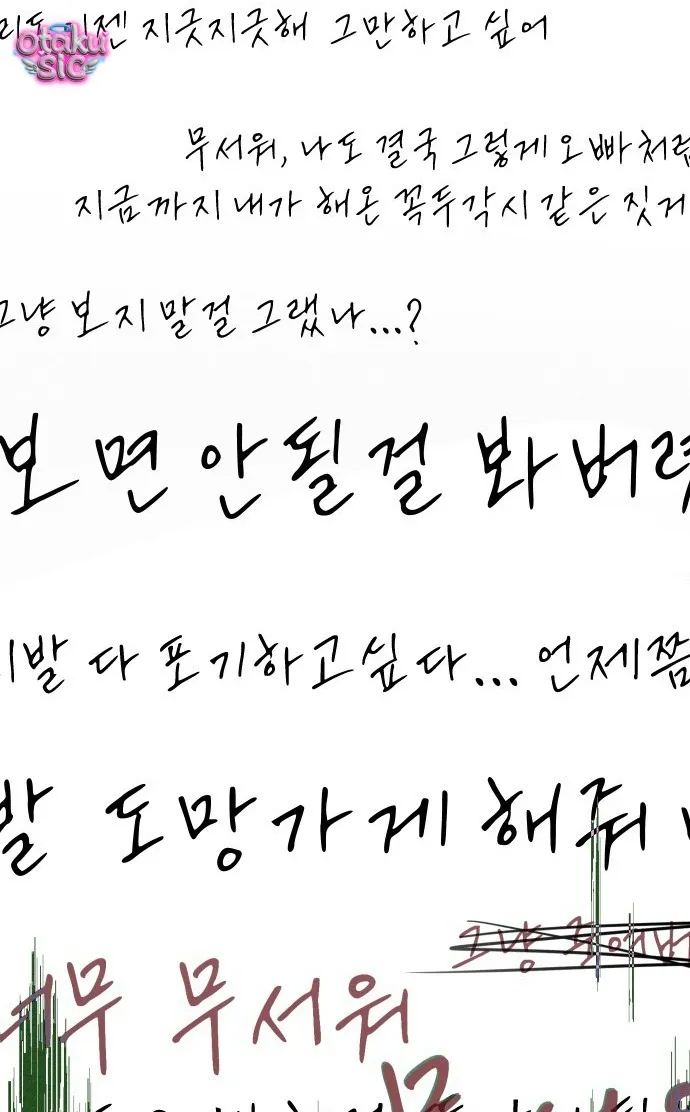 Otaku
SIC
이젠 지긋지긋해 그만하고 싶어
무서워, 나도 결국 그렇게 오빠처럼
지금까지 내가 해온 꼭두각시 같은 짓거
그냥 보지말걸 그랬나...?
보면 안될걸 봐버렷
발 다 포기하고싶다... 언제쯤
발 도망가게 해줘
그냥 죽어버
너무 무서워